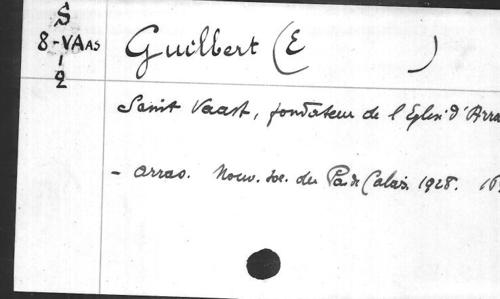 S
8-VAAS
1
2
Guilbert (E )
Saint Vaast, fondateur de l'Eglise d'Arra
- Arras. Nouv. soc. du Pas de Calais. 1928. 16